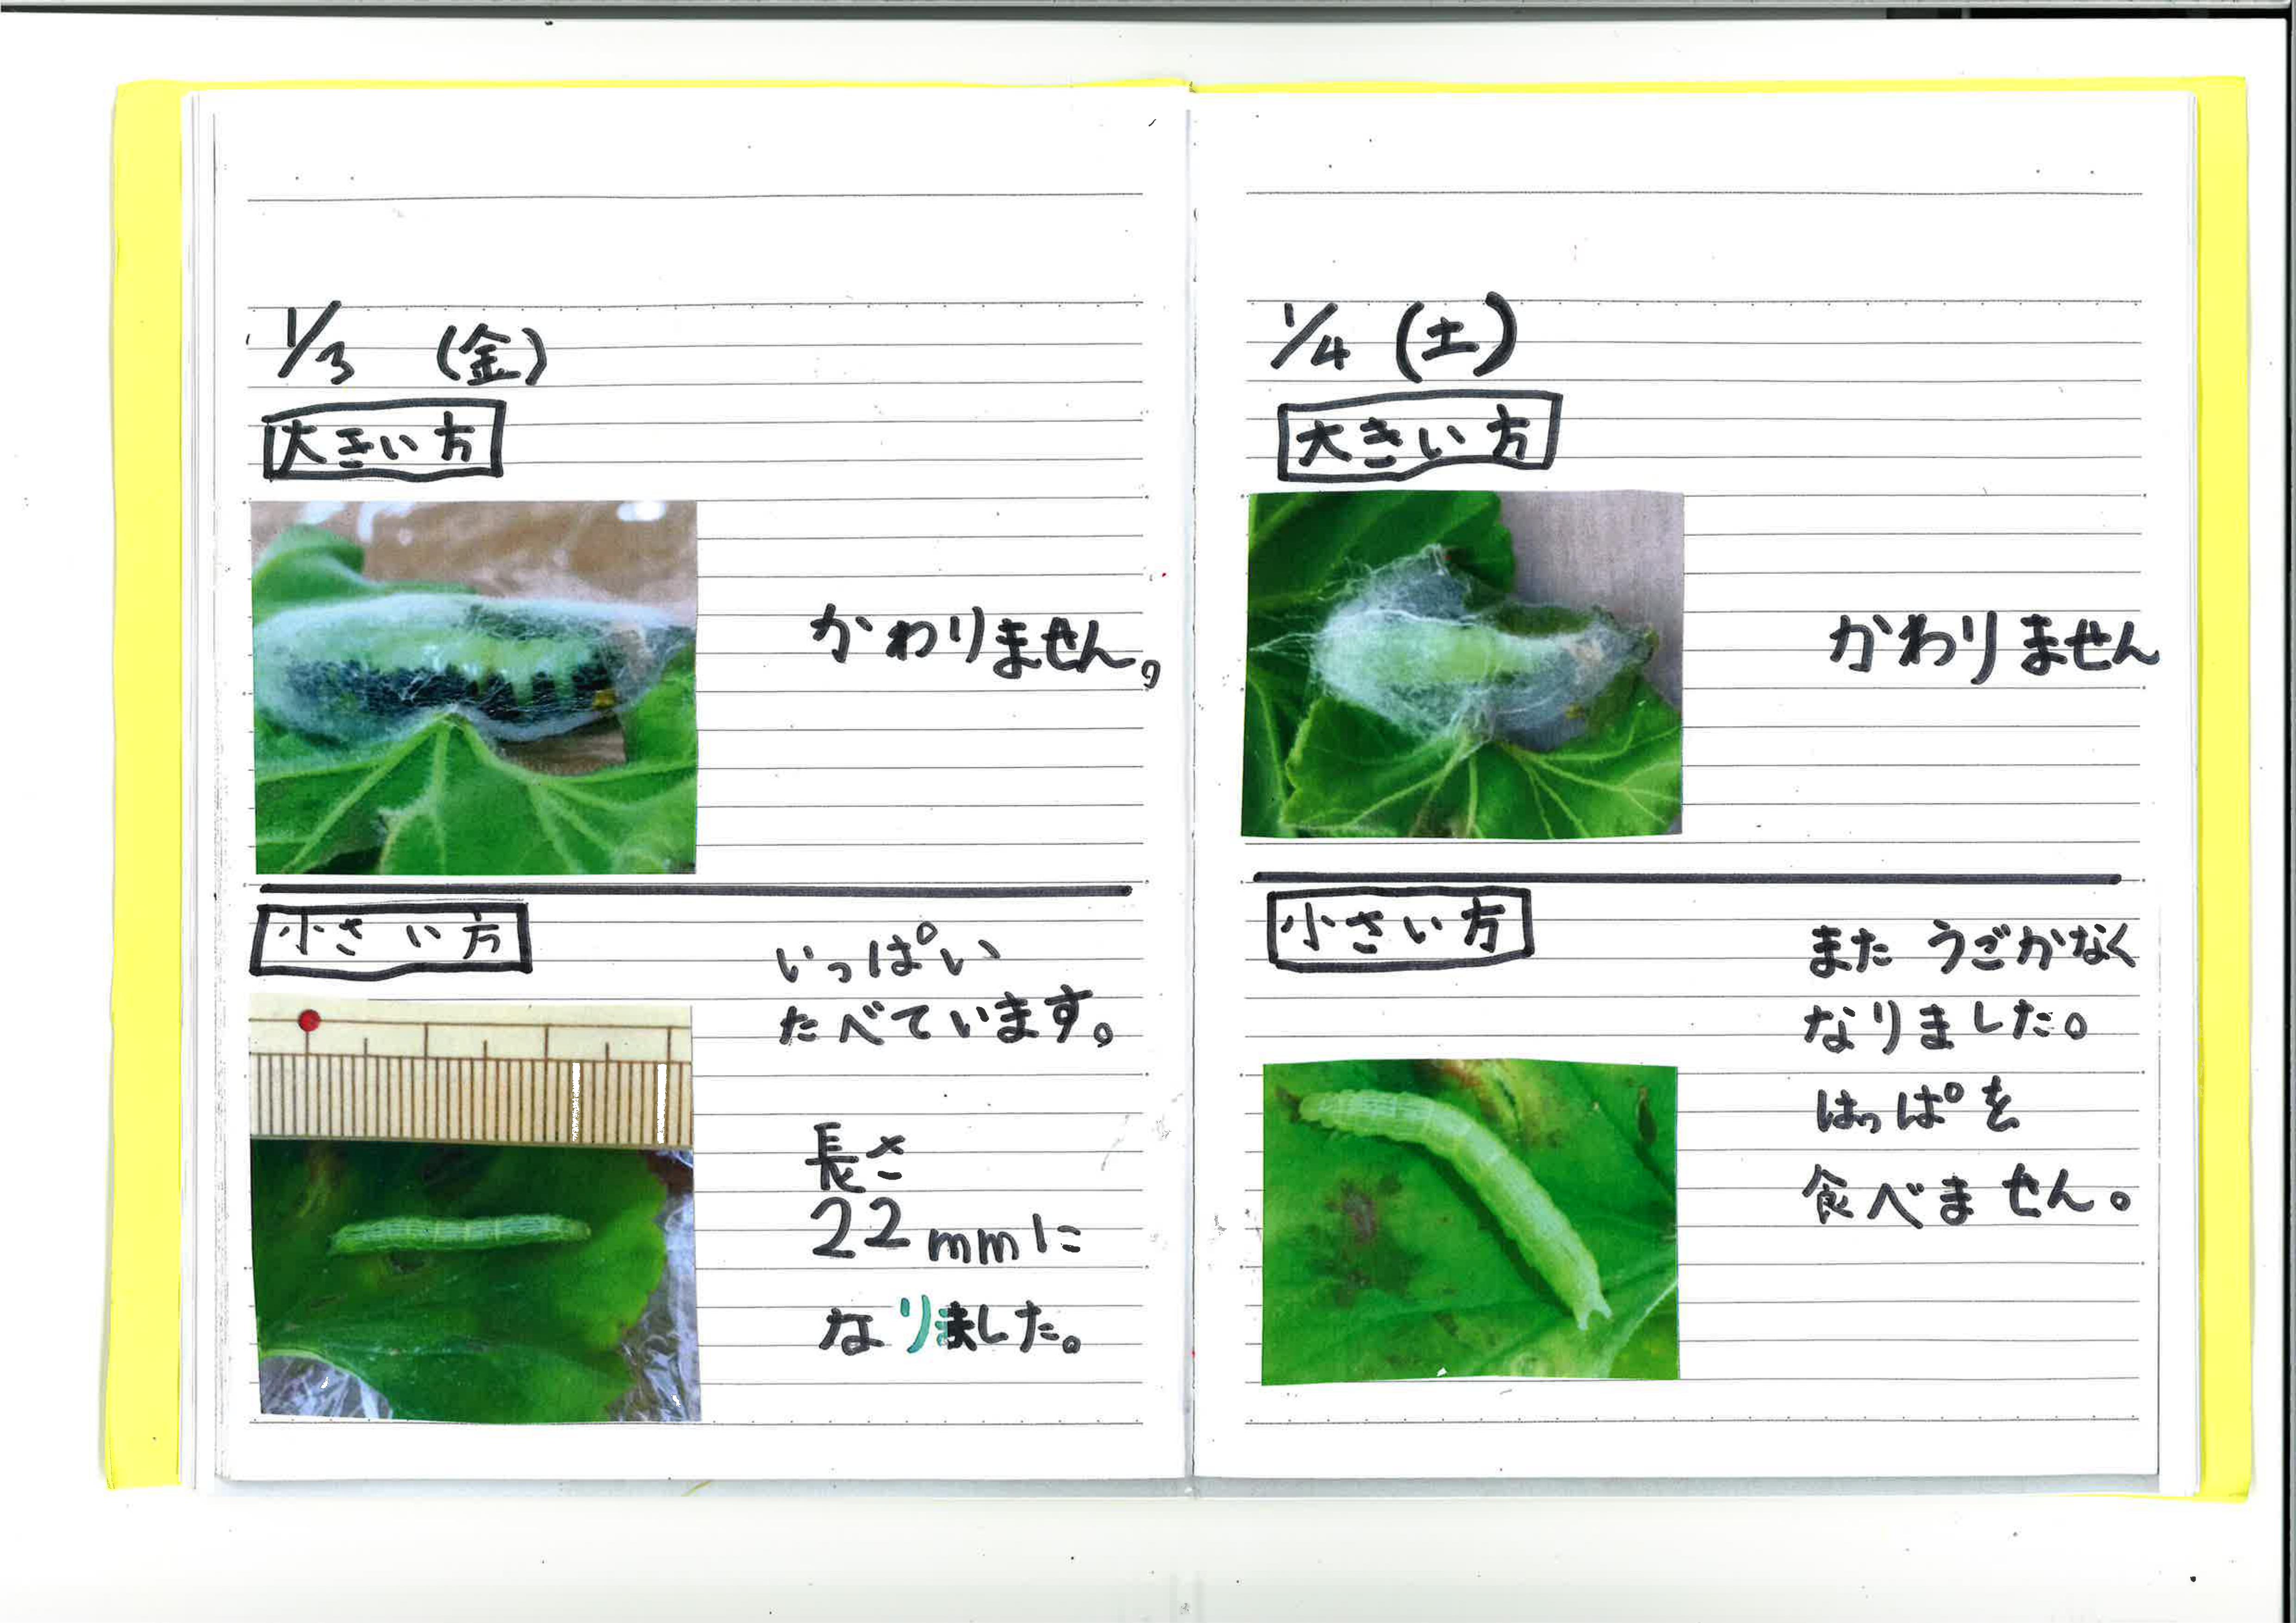 1/3 (金)
大きい方
かわりません。
小さい方
いっぱい
たべています。
長さ
22mmに
なりました。
1/4 (土)
大きい方
かわりません
小さい方
また うごかなく
なりました。
はっぱを
食べません。